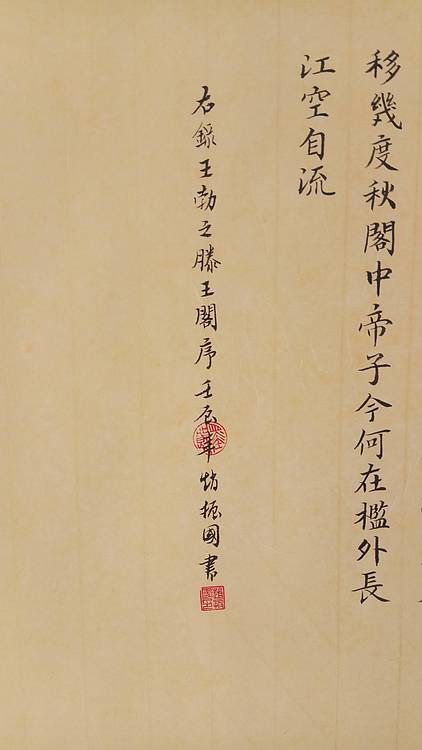 移幾度秋閣中帝子今何在檻外長
江空自流
右錄王勃之滕王閣序壬辰振國書